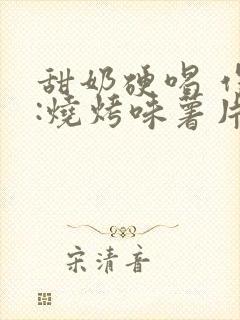 甜奶硬唱
:燒烤味薯片
宋清音